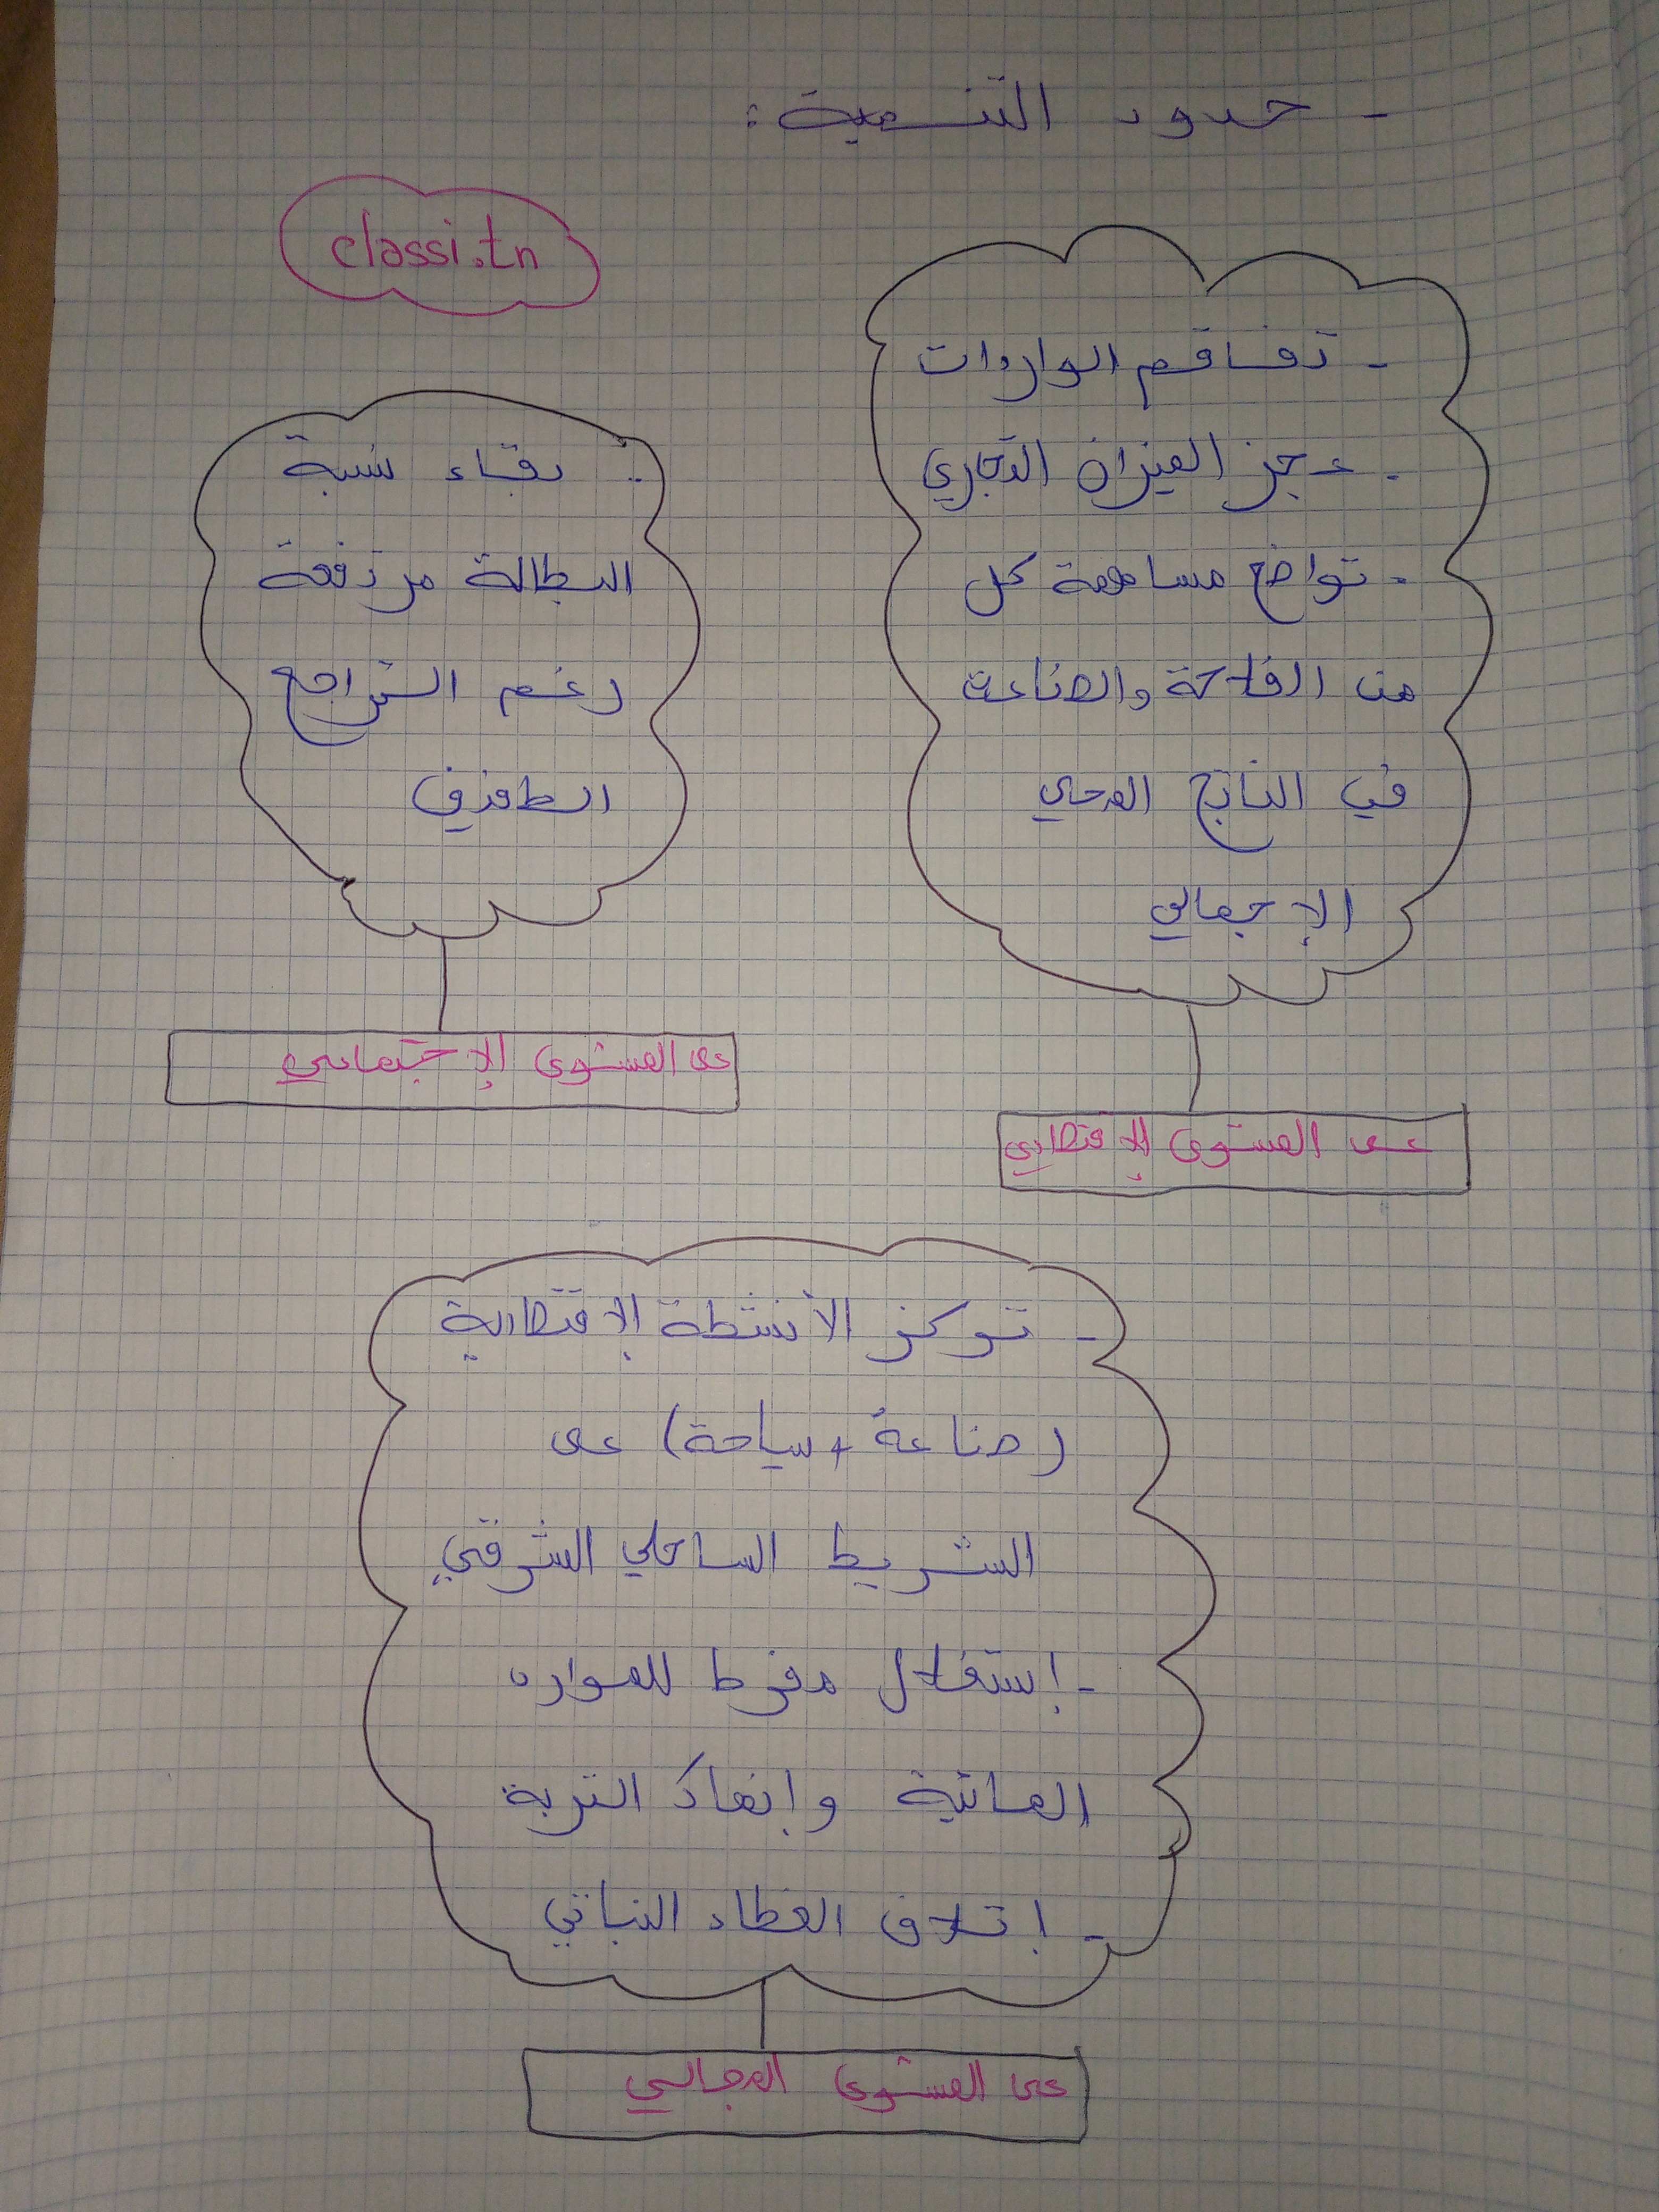 - حدود التنمية:
classi.tn
- تفاقم الواردات
- عجز الميزان التجاري
- تواضع مساهمة كل
من الفلاحة والصناعة
في الناتج المحلي
الإجمالي
على المستوى الإقتصادي
- بقاء نسبة
البطالة مرتفعة
رغم التراجع
الطفيف
على المستوى الإجتماعي
- تركز الأنشطة الإقتصادية
(صناعة + سياحة) على
الشريط الساحلي الشرقي
- إستغلال مفرط للموارد
المائية وإنهاك التربة
- إتلاف الغطاء النباتي
على المستوى المجالي